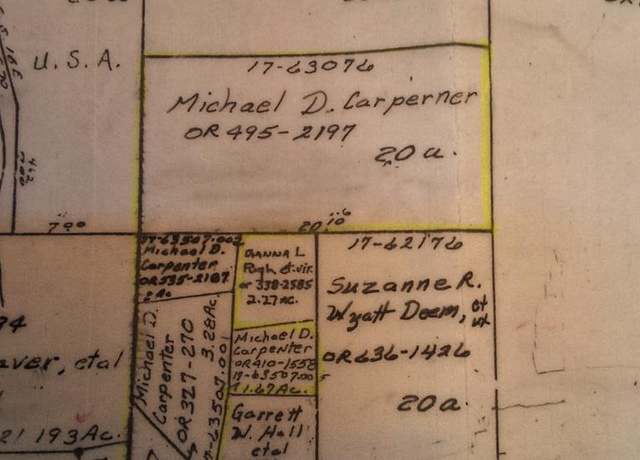 U.S.A.
17-63076
Michael D. Carperner
OR 495-2197
20 a.
7 00
20 10
17-63507.002
Michael D.
Carpenter
OR 535-2187
2 Ac
Danna L
Pugh et vir.
or 338-2585
2.27 Ac.
17-62176
Suzanne R.
Wyatt Deem, et ux
OR 636-1426
20 a
Michael D.
Carpenter
OR 327-270
3.28 Ac.
17-63507.001
Michael D.
Carpenter
OR 410-1558
17-63507.005
1.67 Ac.
Garrett
W. Hall
etal
aver, etal
21 193 Ac.